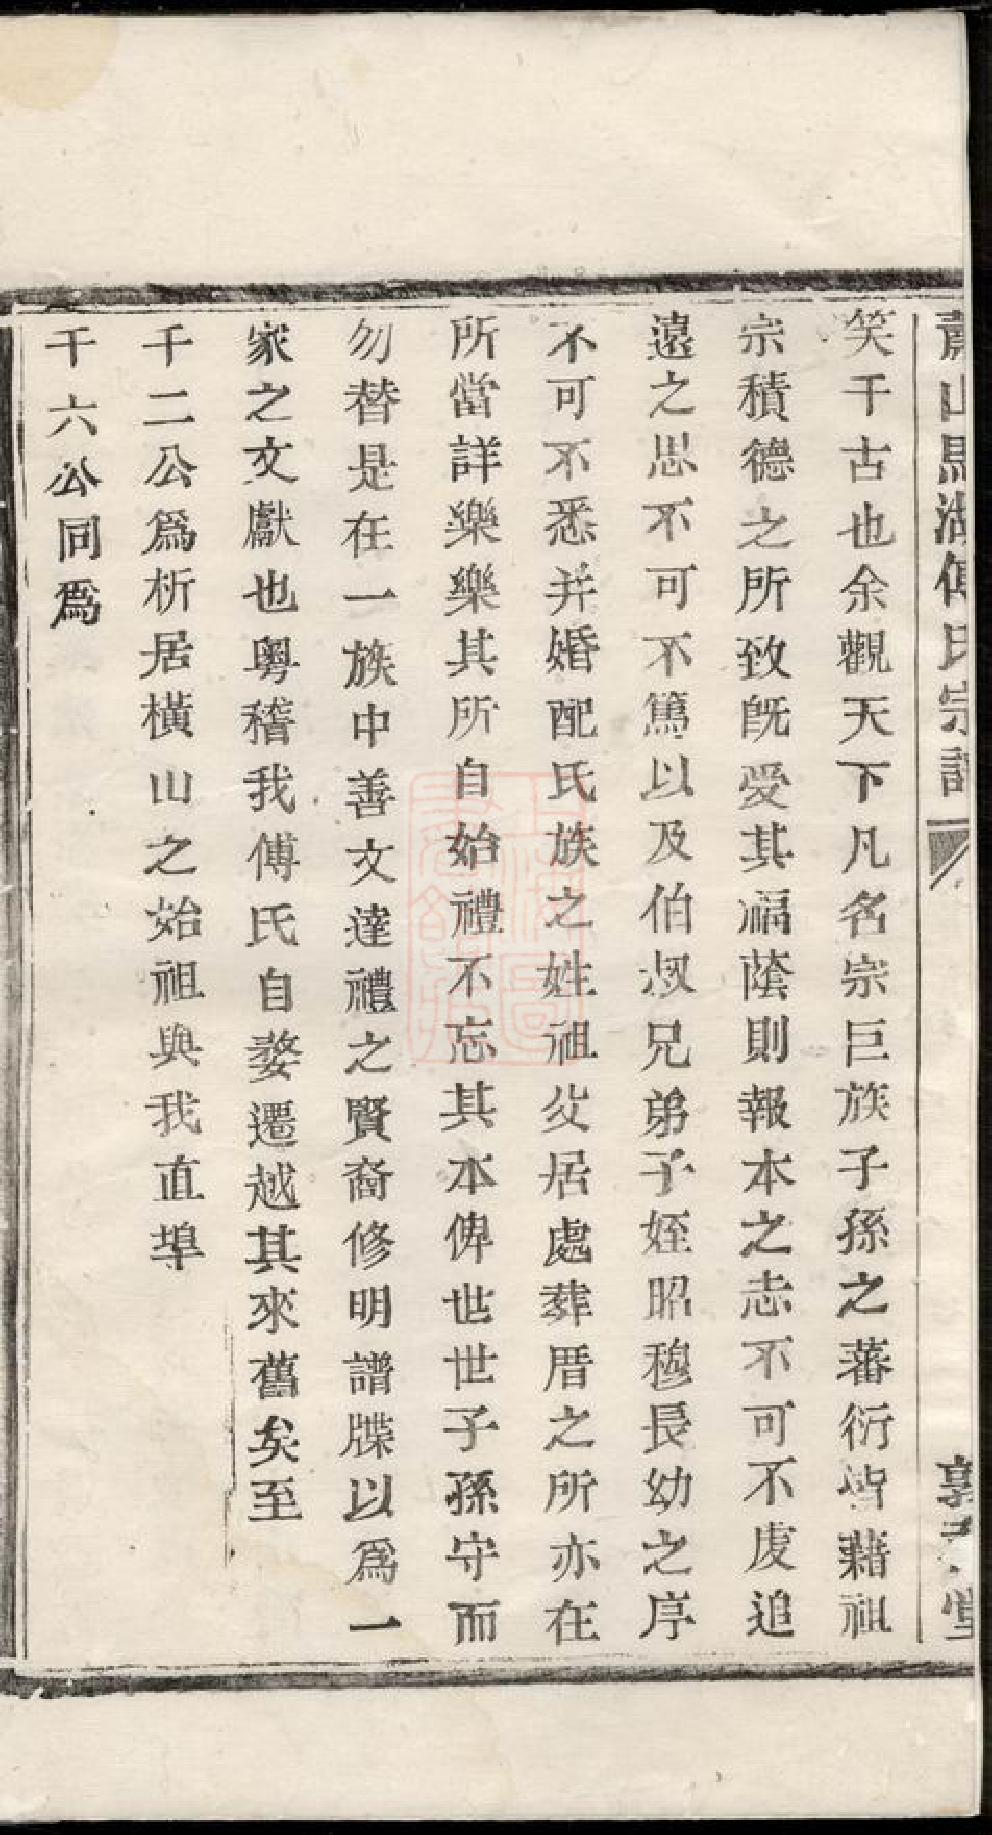 蕭山馬湖傅氏宗譜
堂
笑千古也余觀天下凡名宗巨族子孫之蕃衍皆藉祖
宗積德之所致旣受其福蔭則報本之志不可不虔追
遠之思不可不篤以及伯叔兄弟子姪昭穆長幼之序
不可不悉并婚配氏族之姓祖父居處葬厝之所亦在
所當詳樂樂其所自始禮不忘其本俾世世子孫守而
勿替是在一族中善文達禮之賢裔修明譜牒以爲一
家之文獻也粤稽我傅氏自婺遷越其來舊矣至
千二公爲析居橫山之始祖與我直埠
千六公同爲